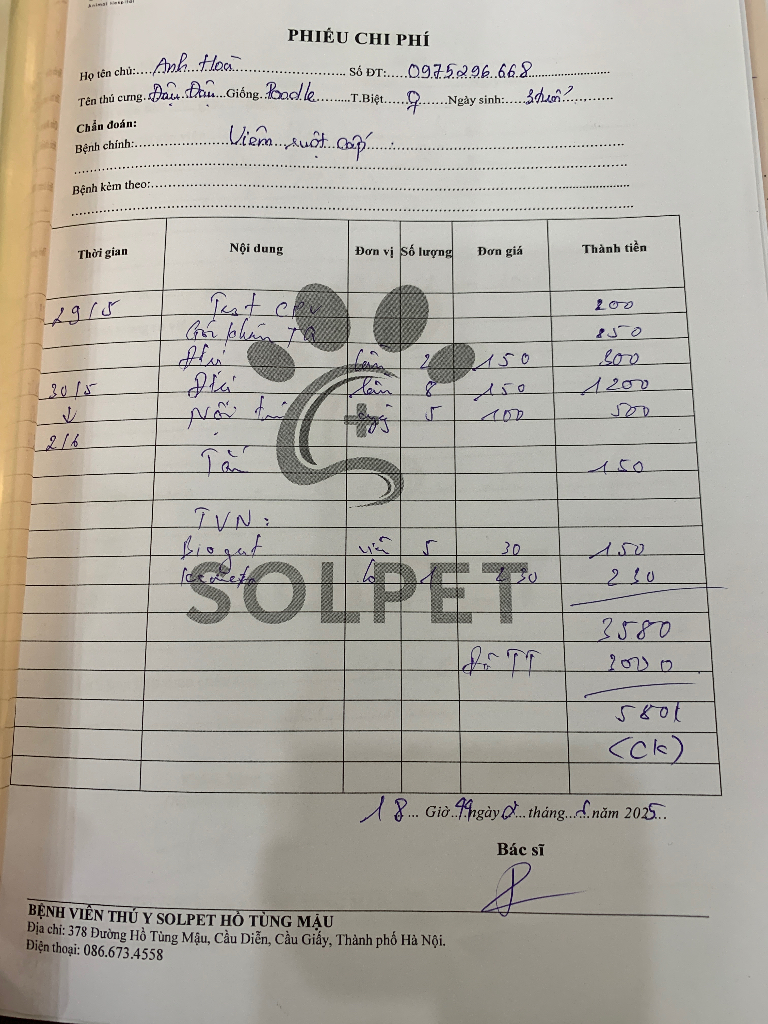 Animal Hospital
PHIẾU CHI PHÍ
Họ tên chủ:.... Anh Hoà ........ Số ĐT:.... 0975296.668 ........
Tên thú cưng. Đậu Đậu ..Giống. Poodle ....T.Biệt. ♀ ....Ngày sinh:... 3 tuổi ........
Chẩn đoán:
Bệnh chính:........ Viêm ruột cấp ........
Bệnh kèm theo:........
Thời gian Nội dung Đơn vị Số lượng Đơn giá Thành tiền
29/5 Test CPV 200
850
Đtrị lần 2 150 300
30/5 Đtrị lần 8 150 1200
↓ Nội trú 5 100 500
2/6
Tắm 150
TVN:
Biogut 5 30 150
lọ 1 230 230
SOLPET
3580
Đã TT 3000
580k
(CK)
18... Giờ ...ngày ... tháng... năm 2025...
Bác sĩ
BỆNH VIÊN THÚ Y SOLPET HỒ TÙNG MẬU
Địa chỉ: 378 Đường Hồ Tùng Mậu, Cầu Diễn, Cầu Giấy, Thành phố Hà Nội.
Điện thoại: 086.673.4558